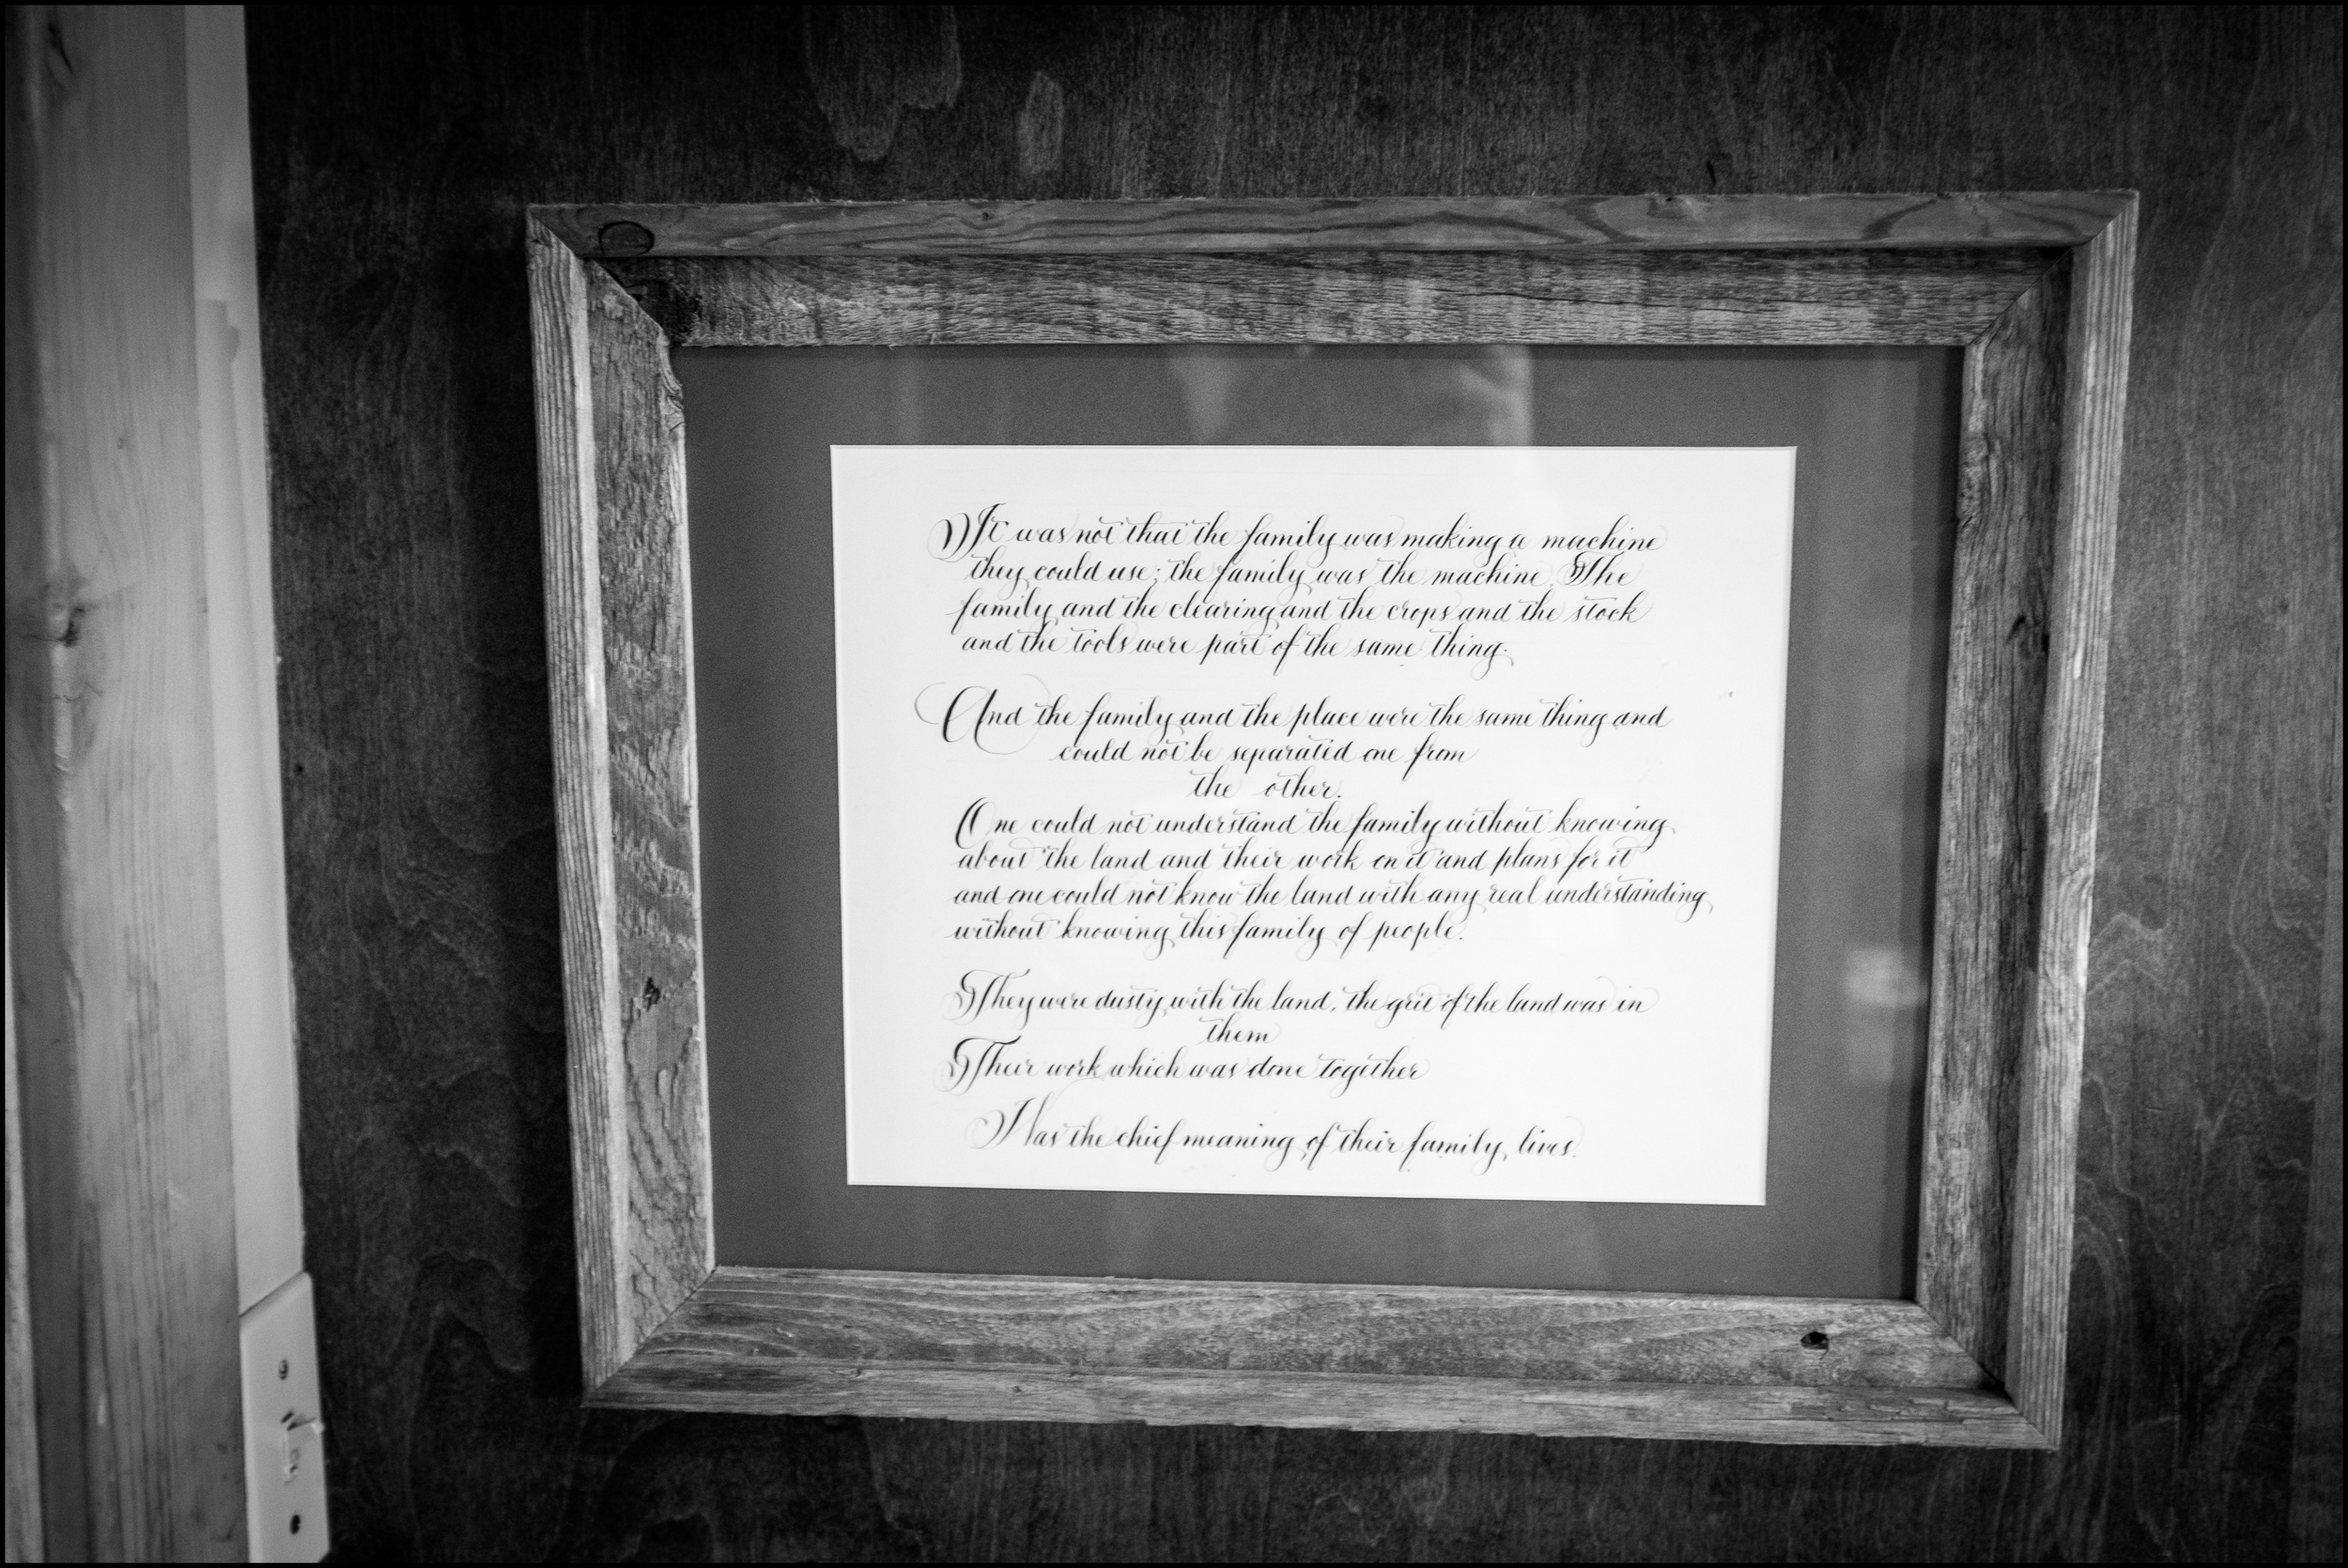 It was not that the family was making a machine
they could use; the family was the machine. The
family and the clearing and the crops and the stock
and the tools were part of the same thing.
And the family and the place were the same thing and
could not be separated one from
the other.
One could not understand the family without knowing
about the land and their work on it and plans for it
and one could not know the land with any real understanding
without knowing this family of people.
They were dusty with the land, the grit of the land was in
them
Their work which was done together
Was the chief meaning of their family lives.